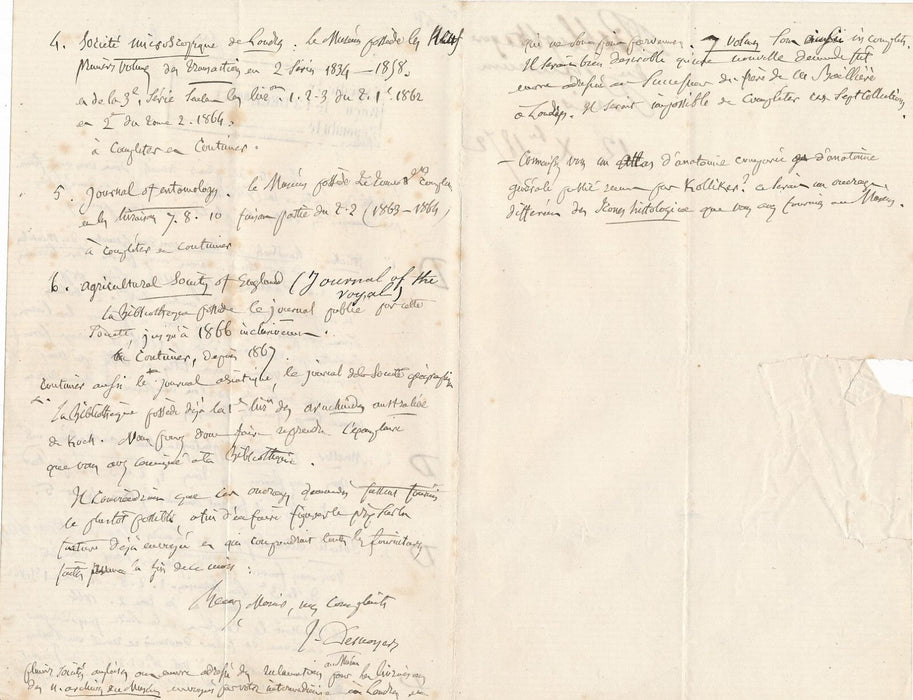 4. Société microscopique de Londres. le Muséum possède les
premiers volumes des transactions en 2 Séries 1834 — 1858.
et de la 3e Série Seulement les livr. 1. 2 - 3 du T. 1er 1862
en 2 du tome 2 - 1864.
à compléter et continuer.
5. Journal of entomology. le Muséum possède le tome
et les livraisons 7. 8. 10 faisant partie du T. 2 (1863 — 1864)
à compléter et continuer
6. agricultural Society of England (Journal of the
royal)
La Bibliothèque possède le journal publié par cette
Société, jusqu'à 1866 inclusivement.
à Continuer, depuis 1867.
Continuer aussi le journal asiatique, le journal de la Société géographique
La Bibliothèque possède déjà la 1re livr. des arachnides australiée
de Koch. Vous pouvez donc faire reprendre l'exemplaire
que vous avez envoyé à la Bibliothèque.
Il conviendrait que ces ouvrages demandés fussent fournis
le plustot possible afin d'en faire figurer le prix sur la
facture déjà envoyée et qui comprendrait toutes les fournitures
faites à fin de ce mois.
mes compliments
J. Desnoyers
plusieurs Sociétés anglaises ont encore adressé des réclamations au Muséum pour les livraisons
des n. archives du Muséum envoyées par votre intermédiaire à Londres et
qui ne sont pas parvenues. 7 volumes sont ainsi incomplets.
Il serait bien désirable qu'une nouvelle demande fût
encore adressée au Successeur du frère de Mr Baillière
à Londres. Il serait impossible de compléter ces Sept collections
— Connaissez vous un atlas d'anatomie comparée d'anatomie
générale publié récemment par Kolliker? ce serait un ouvrage
différent des Icones histologicae que vous avez fournies au Muséum.